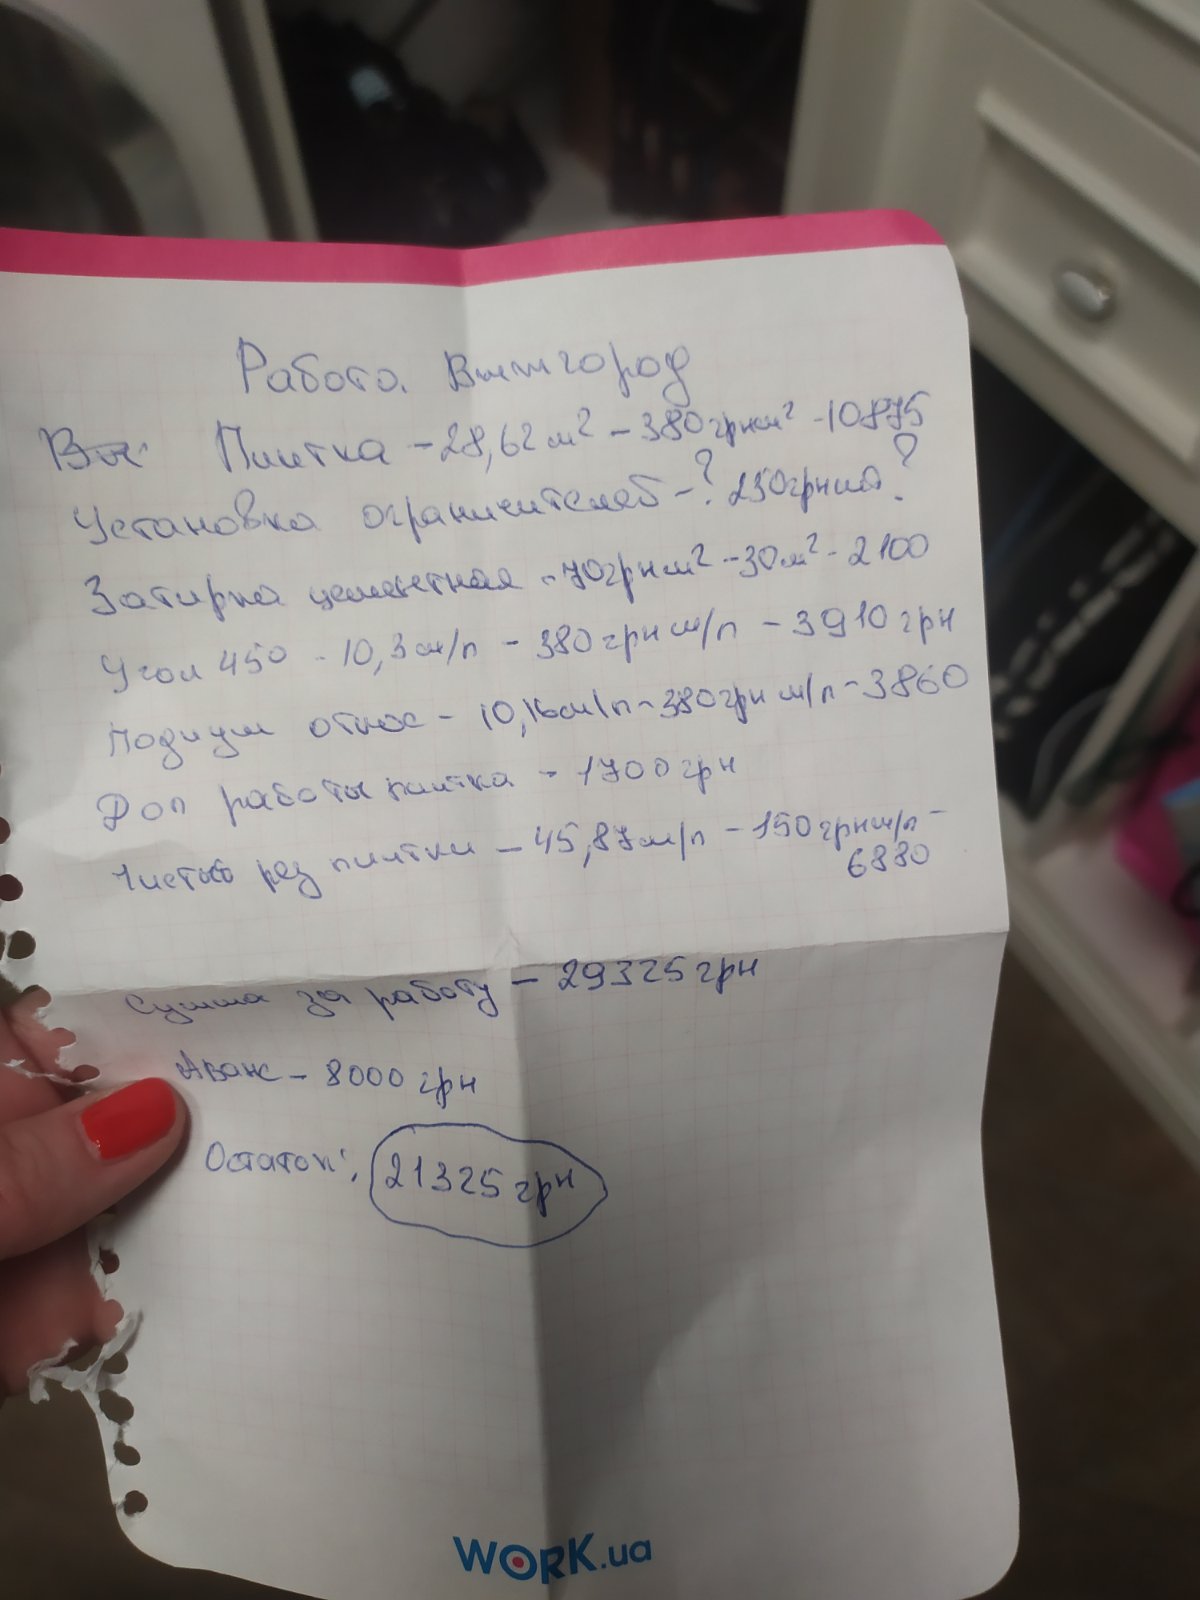 Работа. Вышгород
Плитка - 28,62 м² - 380 грн м² - 10875
Установка ограничителей - ? 250 грн ?
Затирка цементная - 70 грн м² - 30 м² - 2100
Угол 45° - 10,3 м/п - 380 грн м/п - 3910 грн
Подиум откос - 10,16 м/п - 380 грн м/п - 3860
Доп работы плитка - 1700 грн
Чистый рез плитки - 45,87 м/п - 150 грн м/п -
6880
Сумма за работу - 29325 грн
Аванс - 8000 грн
Остаток: 21325 грн
WORK.ua